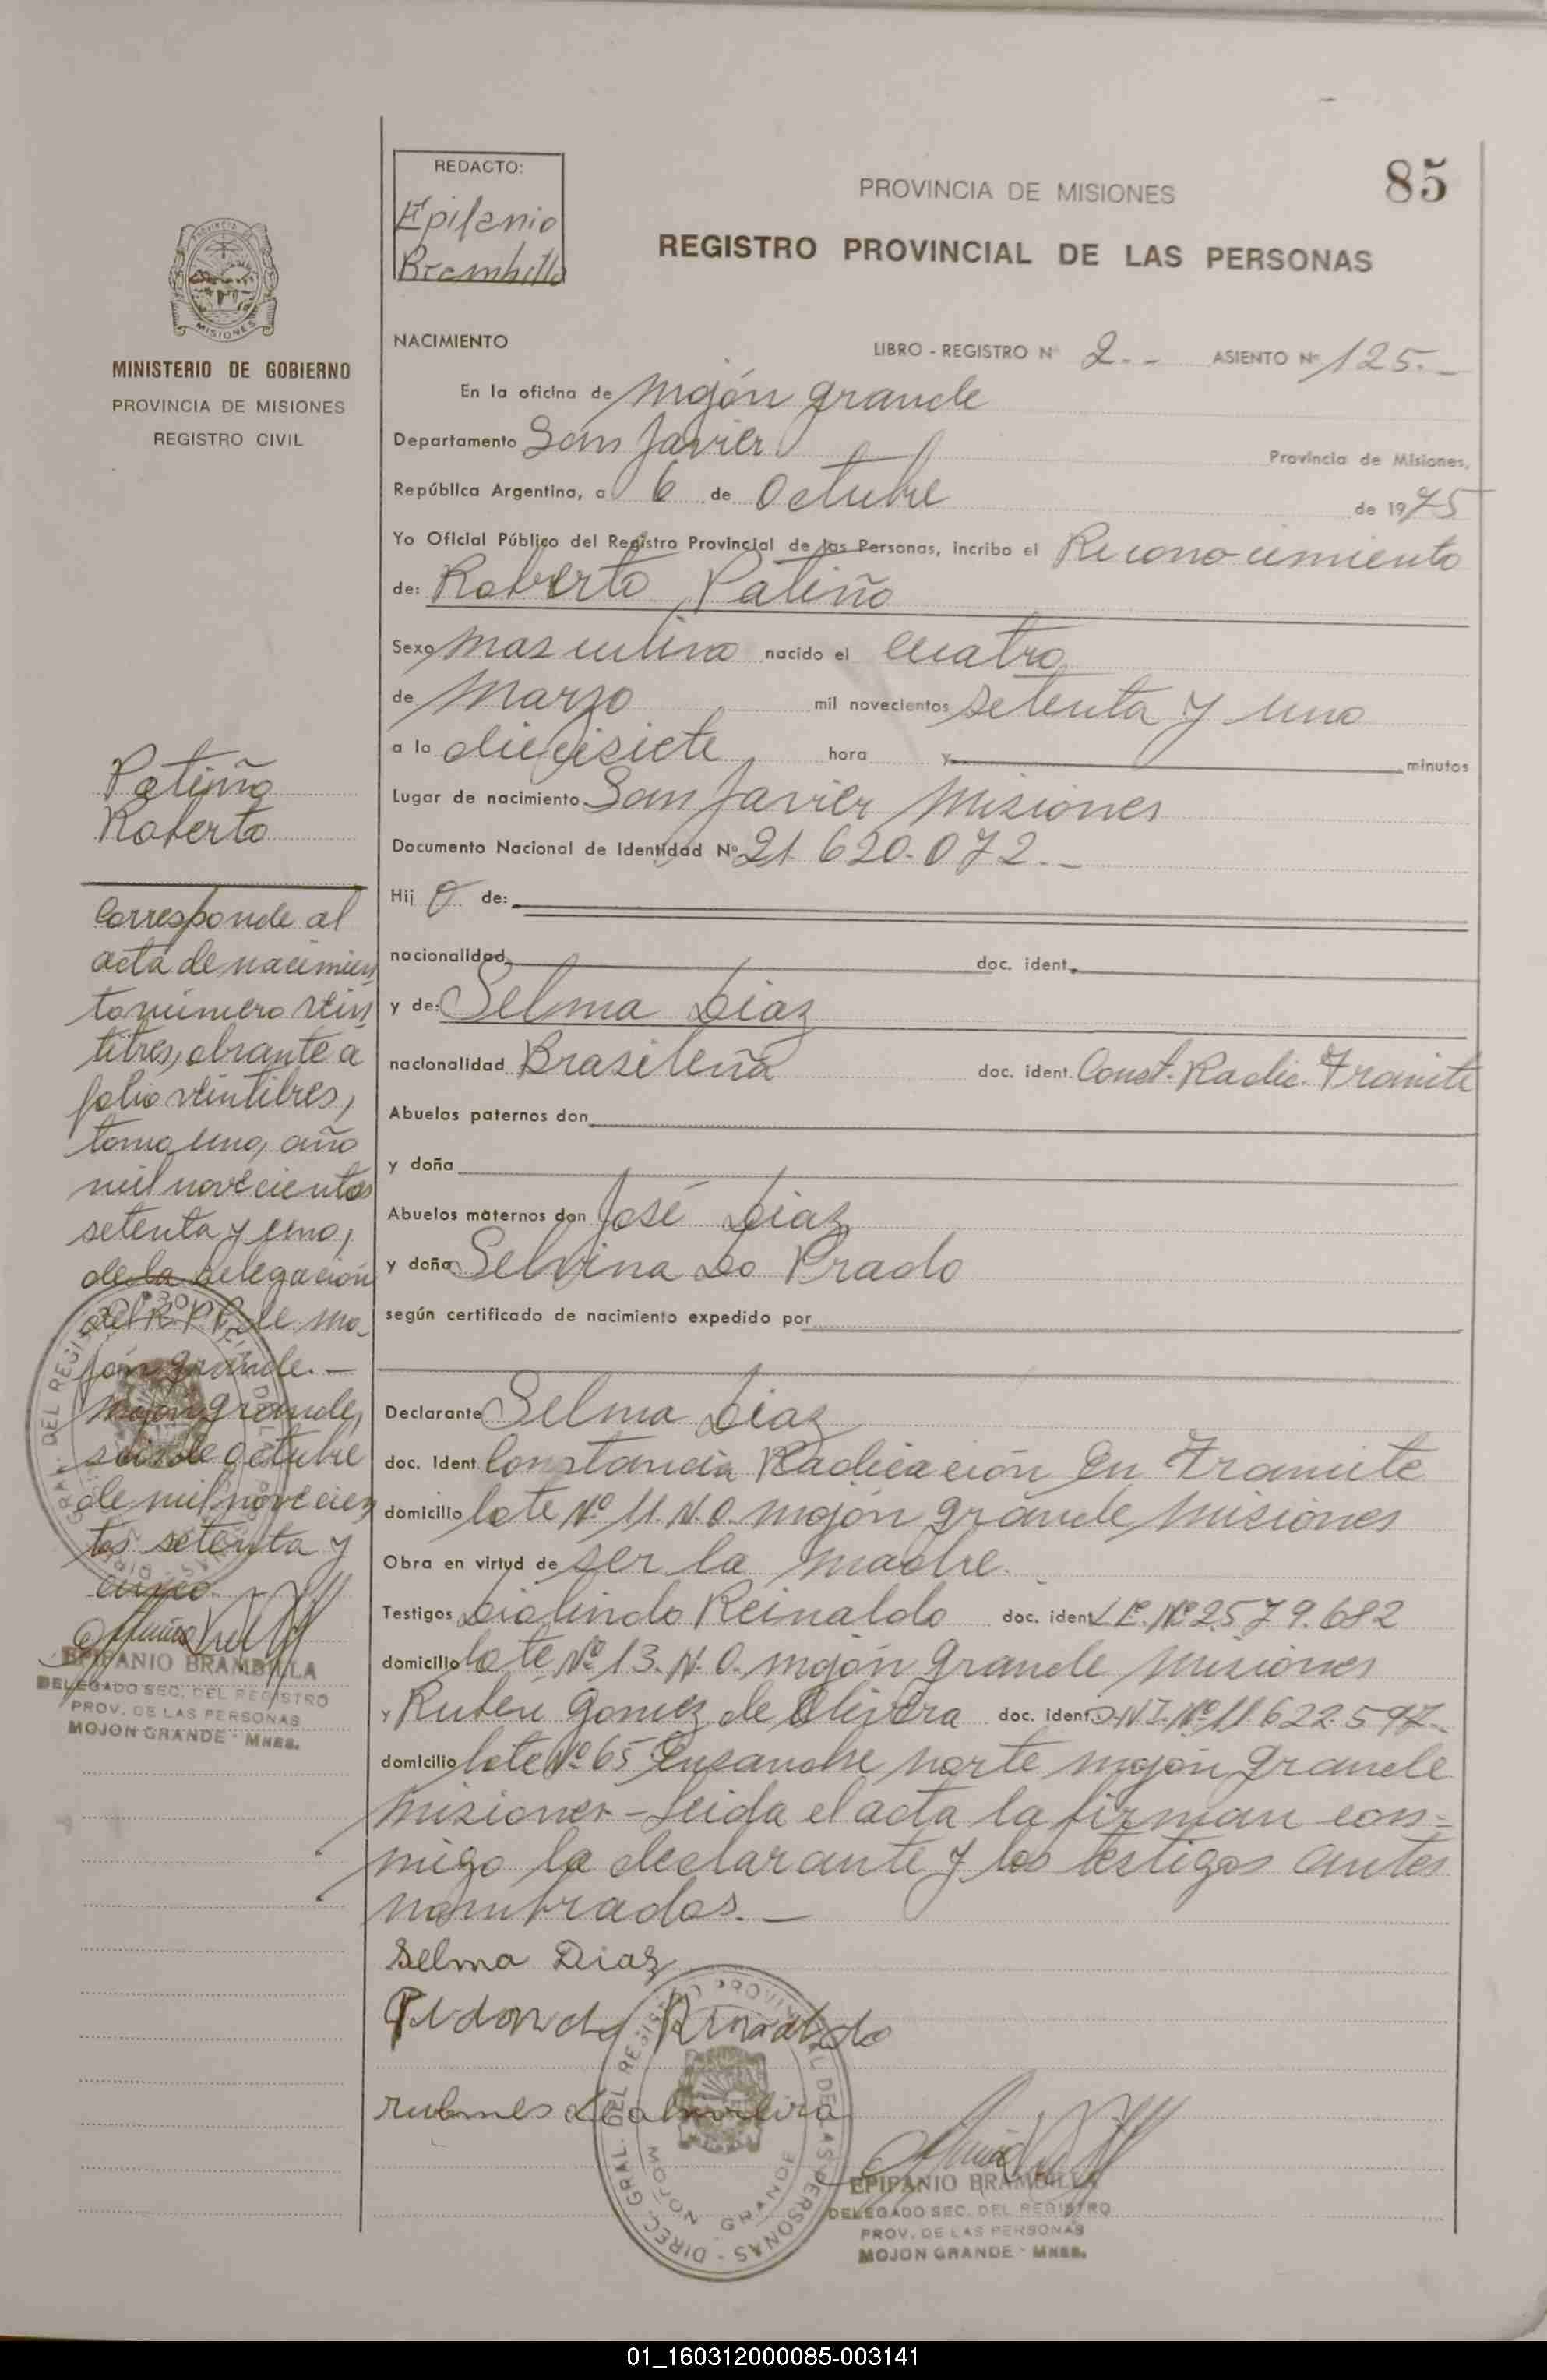 85
REDACTO:
Epifanio
Brambilla
PROVINCIA DE MISIONES
REGISTRO PROVINCIAL DE LAS PERSONAS
PROVINCIA DE
MISIONES
MINISTERIO DE GOBIERNO
PROVINCIA DE MISIONES
REGISTRO CIVIL
NACIMIENTO
LIBRO - REGISTRO Nº 2.-- ASIENTO Nº 125.-
En la oficina de Mojón grande
Departamento San Javier Provincia de Misiones,
República Argentina, a 6 de Octubre de 1975
Yo Oficial Público del Registro Provincial de las Personas, incribo el Reconocimiento
de: Roberto Patiño
Sexo masculino nacido el cuatro
de Marzo mil novecientos setenta y uno
a la diecisiete hora y minutos
Lugar de nacimiento San Javier Misiones
Documento Nacional de Identidad Nº 21.620.072.-
Hij o de:
nacionalidad doc. ident.
y de: Selma Diaz
nacionalidad Brasileña doc. ident. Const. Radic. Tramite
Abuelos paternos don
y doña
Abuelos maternos don José Diaz
y doña Selvina Do Prado
según certificado de nacimiento expedido por
Declarante Selma Diaz
doc. Ident. Constancia Radicación En Tramite
domicilio lote Nº 11. N.O. mojón grande Misiones
Obra en virtud de ser la madre.
Testigos Reinaldo doc. ident. L.E. Nº 2.579.682
domicilio lote Nº 13. N.O. mojón grande Misiones
y Ruben Gomez de Olivera doc. ident. D.N.I. Nº 11.622.597.-
domicilio lote Nº 65 Ensanche norte mojón grande
Misiones.- Leida el acta la firman con-
migo la declarante y los testigos antes
nombrados.-
Selma Diaz
EPIFANIO BRAMBILLA
DELEGADO SEC. DEL REGISTRO
PROV. DE LAS PERSONAS
MOJON GRANDE - MNES.
DIREC. GRAL. DEL REGISTRO PROVINCIAL DE LAS PERSONAS
MOJON GRANDE
Patiño
Roberto
Corresponde al
acta de nacimien
to número vein
titres, obrante a
folio veintitres,
tomo uno, año
mil novecientos
setenta y uno,
de la delegación
del R.P.P. de mo-
jón grande.-
Mojón grande,
seis de octubre
de mil novecien
tos setenta y
cinco.-
EPIFANIO BRAMBILLA
DELEGADO SEC. DEL REGISTRO
PROV. DE LAS PERSONAS
MOJON GRANDE - MNES.
01_160312000085-003141